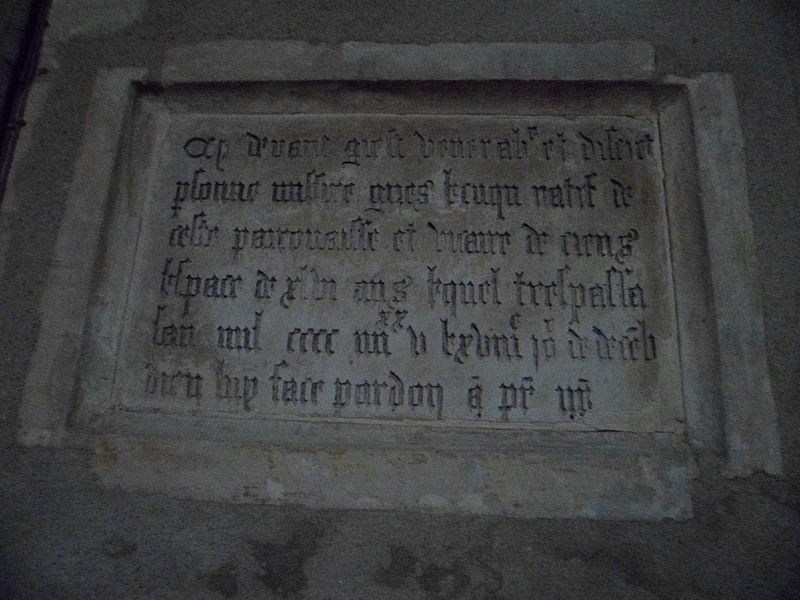 Cy devant gist venerabᵉ et discrete
psonne missire gues natif de
ceste parrouaisse et vicaire de ciens
lespace de xlvi ans lequel trespassa
lan mil cccc iiiiˣˣ v le xviiiᵉ joʳ de decēb
dieu luy face pardon